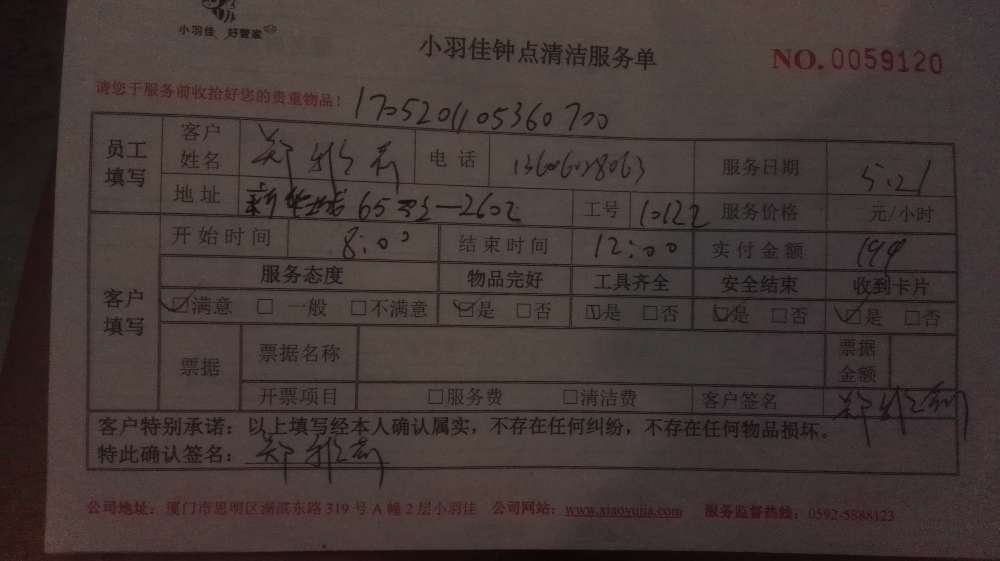 小羽佳 好管家
小羽佳钟点清洁服务单
NO. 0059120
请您于服务前收拾好您的贵重物品!
1705201105360700
员工填写 客户姓名 郑雅 电话 服务日期 5.21
地址 65号之一2602 工号 10122 服务价格 元/小时
客户填写 开始时间 8:00 结束时间 12:00 实付金额
服务态度 物品完好 工具齐全 安全结束 收到卡片
☑满意 □一般 □不满意 ☑是 □否 ☑是 □否 ☑是 □否 ☑是 □否
票据 票据名称 票据金额
开票项目 □服务费 □清洁费 客户签名 郑雅
客户特别承诺：以上填写经本人确认属实，不存在任何纠纷，不存在任何物品损坏。
特此确认签名：郑雅
公司地址：厦门市思明区湖滨东路319号A幢2层小羽佳 公司网站：www.xiaoyujia.com 服务监督热线：0592-5888123